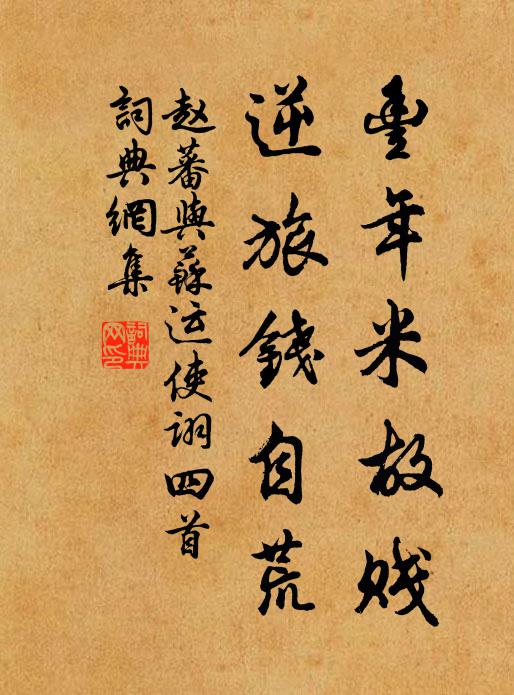 豐年米故賤
逆旅錢自荒
赵蕃與蘇运使詡四首
詞典網集
詞典网印